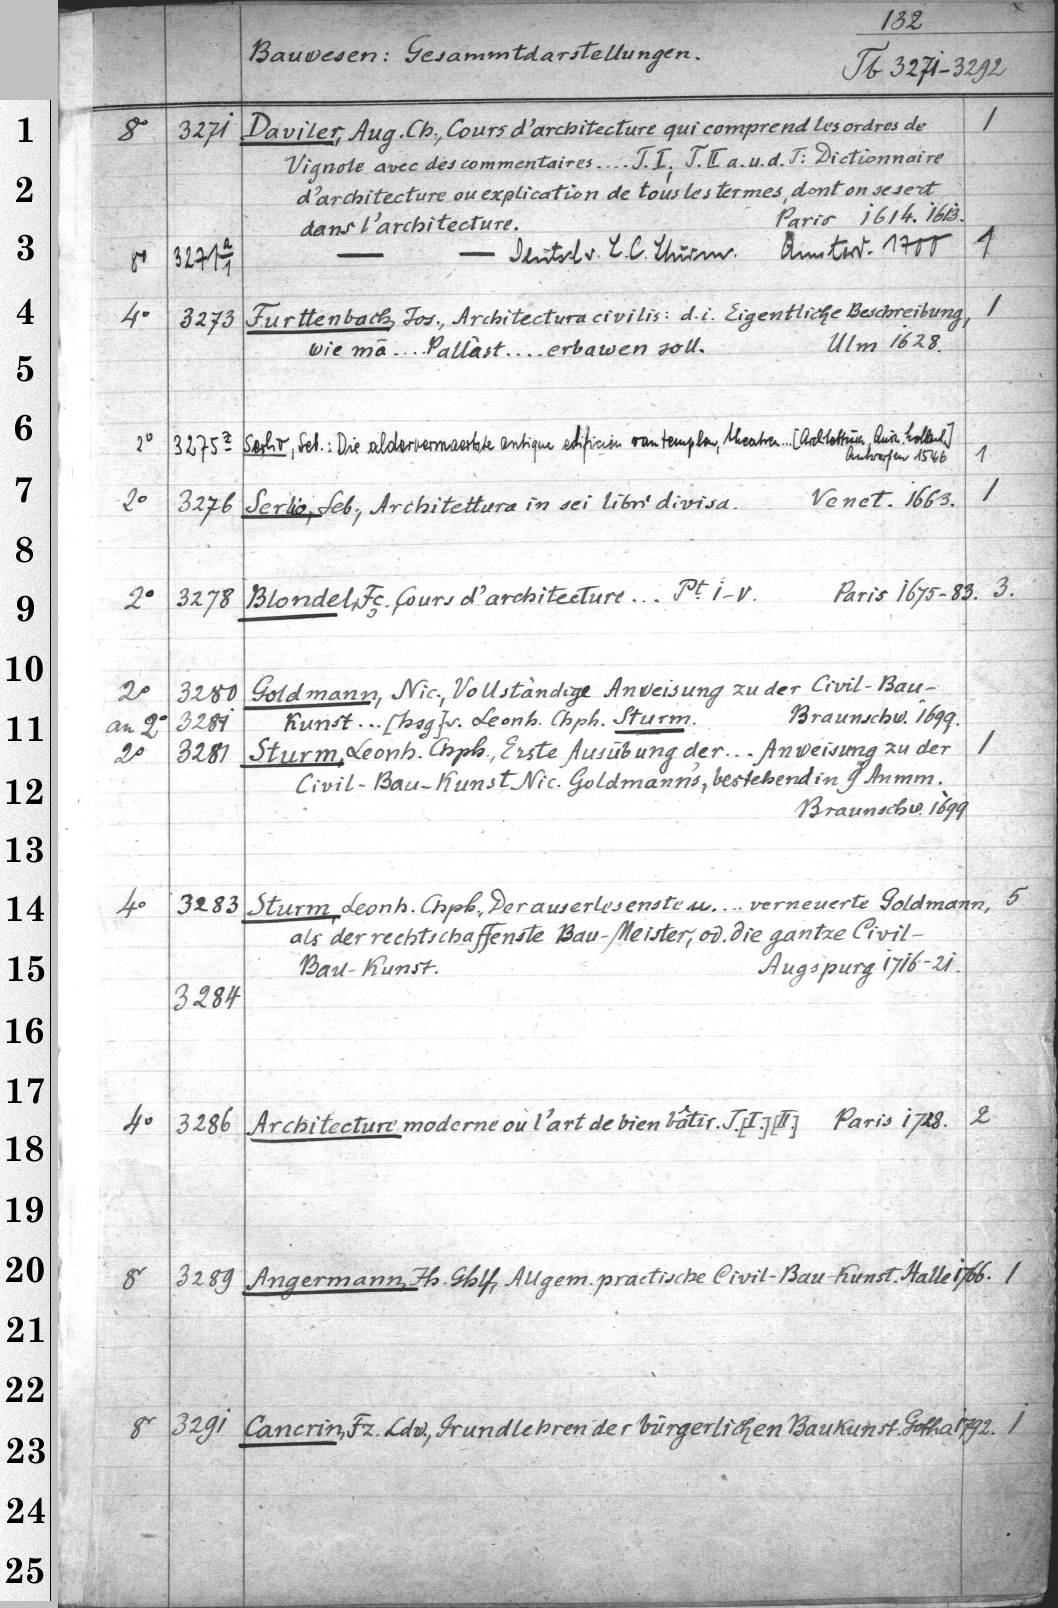 132
Bauwesen: Gesammtdarstellungen.
Tb 3271-3292
1
8° 3271 Daviler, Aug. Ch., Cours d'architecture qui comprend les ordres de 1
Vignole avec des commentaires .... T. I, T. II a. u. d. T: Dictionnaire
2
d'architecture ou explication de tous les termes, dont on se sert
dans l'architecture. Paris 1614. 1613.
3
8° 3271 a/1 — — Deutsch v. L. C. Sturm. Amsterd. 1700 1
4
4° 3273 Furttenbach, Jos., Architectura civilis: d. i. Eigentliche Beschreibung, 1
wie mā .... Pallàst .... erbawen soll. Ulm 1628.
5
6
2° 3275 Serlio, Seb.: Die aldervermaertste antique edificien van templen, theatren...
Antwerpen 1546 1
7
2° 3276 Serlio, Seb., Architettura in sei libri divisa. Venet. 1663. 1
8
9
2° 3278 Blondel, Fç. Cours d'architecture ... Pt. I-V. Paris 1675-83. 3.
10
2° 3280 Goldmann, Nic., Vollständige Anweisung zu der Civil-Bau-
11
an 2° 3281 Kunst ... [hsg] v. Leonh. Chph. Sturm. Braunschw. 1699.
2° 3281 Sturm, Leonh. Chph., Erste Ausübung der ... Anweisung zu der 1
12
Civil-Bau-Kunst Nic. Goldmann's, bestehend in 9 Anmm.
Braunschw. 1699
13
14
4° 3283 Sturm, Leonh. Chph., Der auserlesenste u. ... verneuerte Goldmann, 5
als der rechtschaffenste Bau-Meister, od. die gantze Civil-
15
Bau-Kunst. Augspurg 1716-21.
3284
16
17
4° 3286 Architecture moderne ou l'art de bien bâtir. T. [I.] [II.] Paris 1728. 2
18
19
20
8° 3289 Angermann, Fh. Ghlf, Allgem. practische Civil-Bau-Kunst. Halle 1766. 1
21
22
8° 3291 Cancrin, Fz. Ldw., Grundlehren der bürgerlichen Baukunst. Gotha 1792. 1
23
24
25